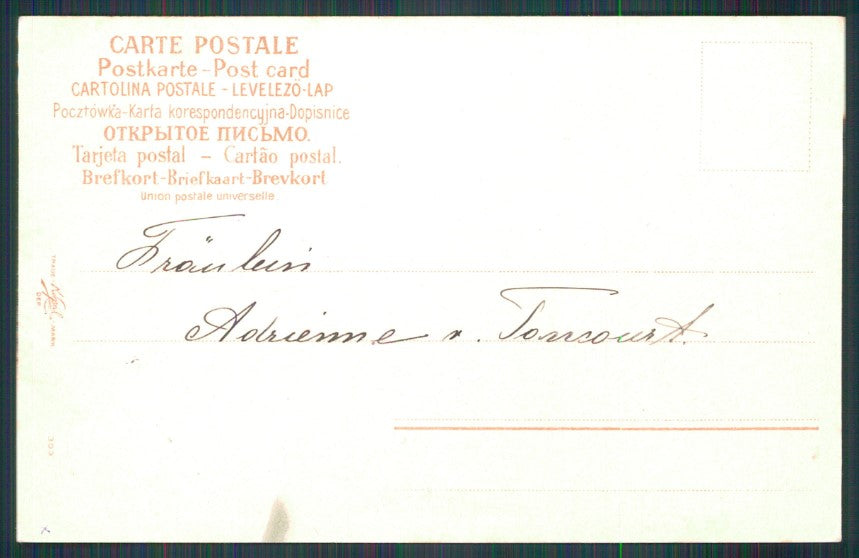 CARTE POSTALE
Postkarte - Post card
CARTOLINA POSTALE - LEVELEZÖ-LAP
Pocztówka-Karta korespondencyjna-Dopisnice
ОТКРЫТОЕ ПИСЬМО.
Tarjeta postal - Cartão postal.
Brefkort-Briefkaart-Brevkort
Union postale universelle.
Fräulein
Adrienne v. Toncourt.
TRADE MARK
DEP
303